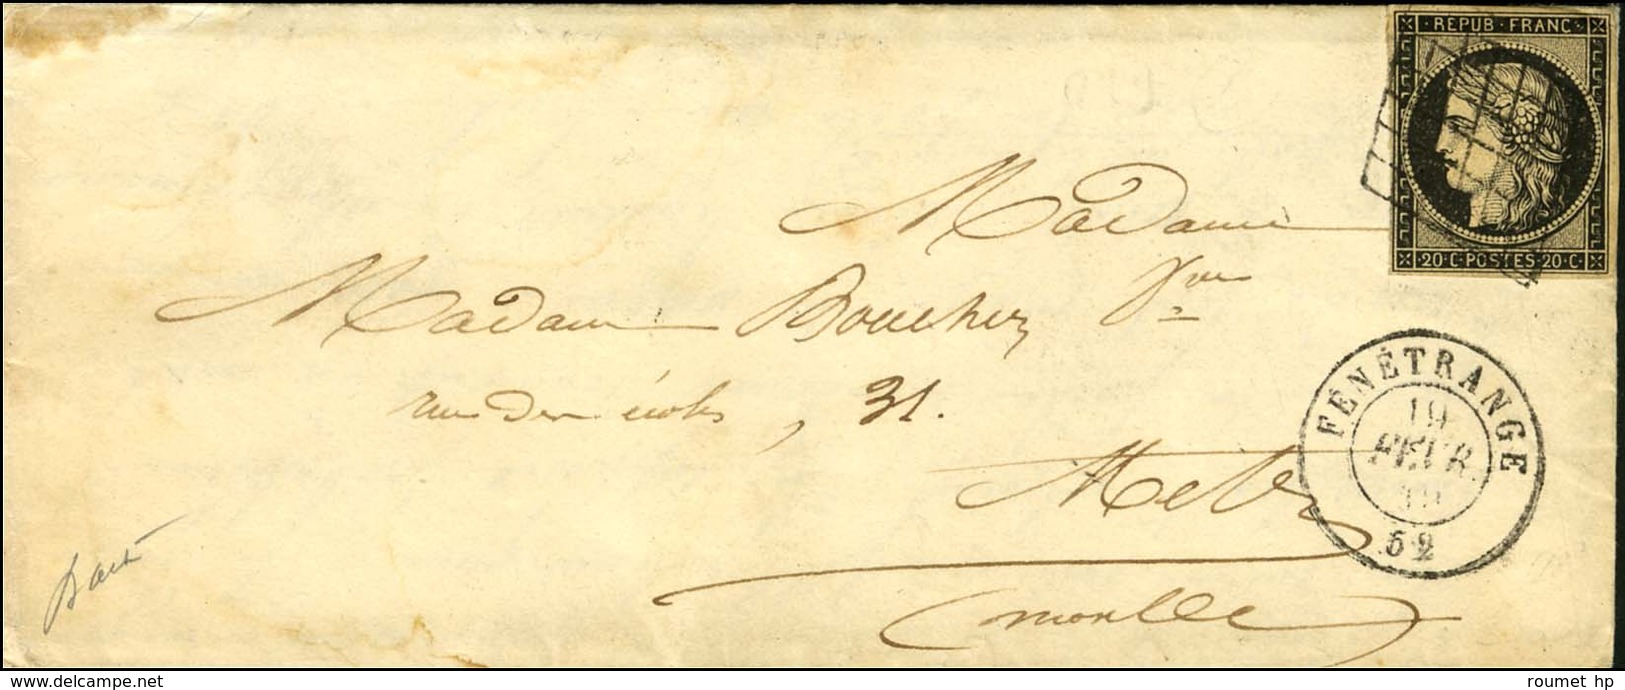 REPUB·FRANC·
20·C·POSTES·20·C·
Madame
Madame Boucher Vve
rue des écoles, 31.
Metz
Moselle
FÉNÉTRANGE
19
FEVR.
52
www.delcampe.net
roumet hp